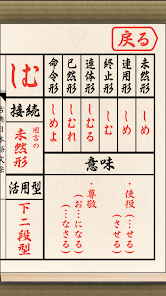 戻る
未然形
しめ
連用形
しめ
終止形
しむ
連体形
しむる
已然形
しむれ
命令形
しめよ
しむ
接続
用言の
未然形
活用型
下二段型
意味
・使役(…せる)
(…させる)
・尊敬
(お…になる)
(…なさる)